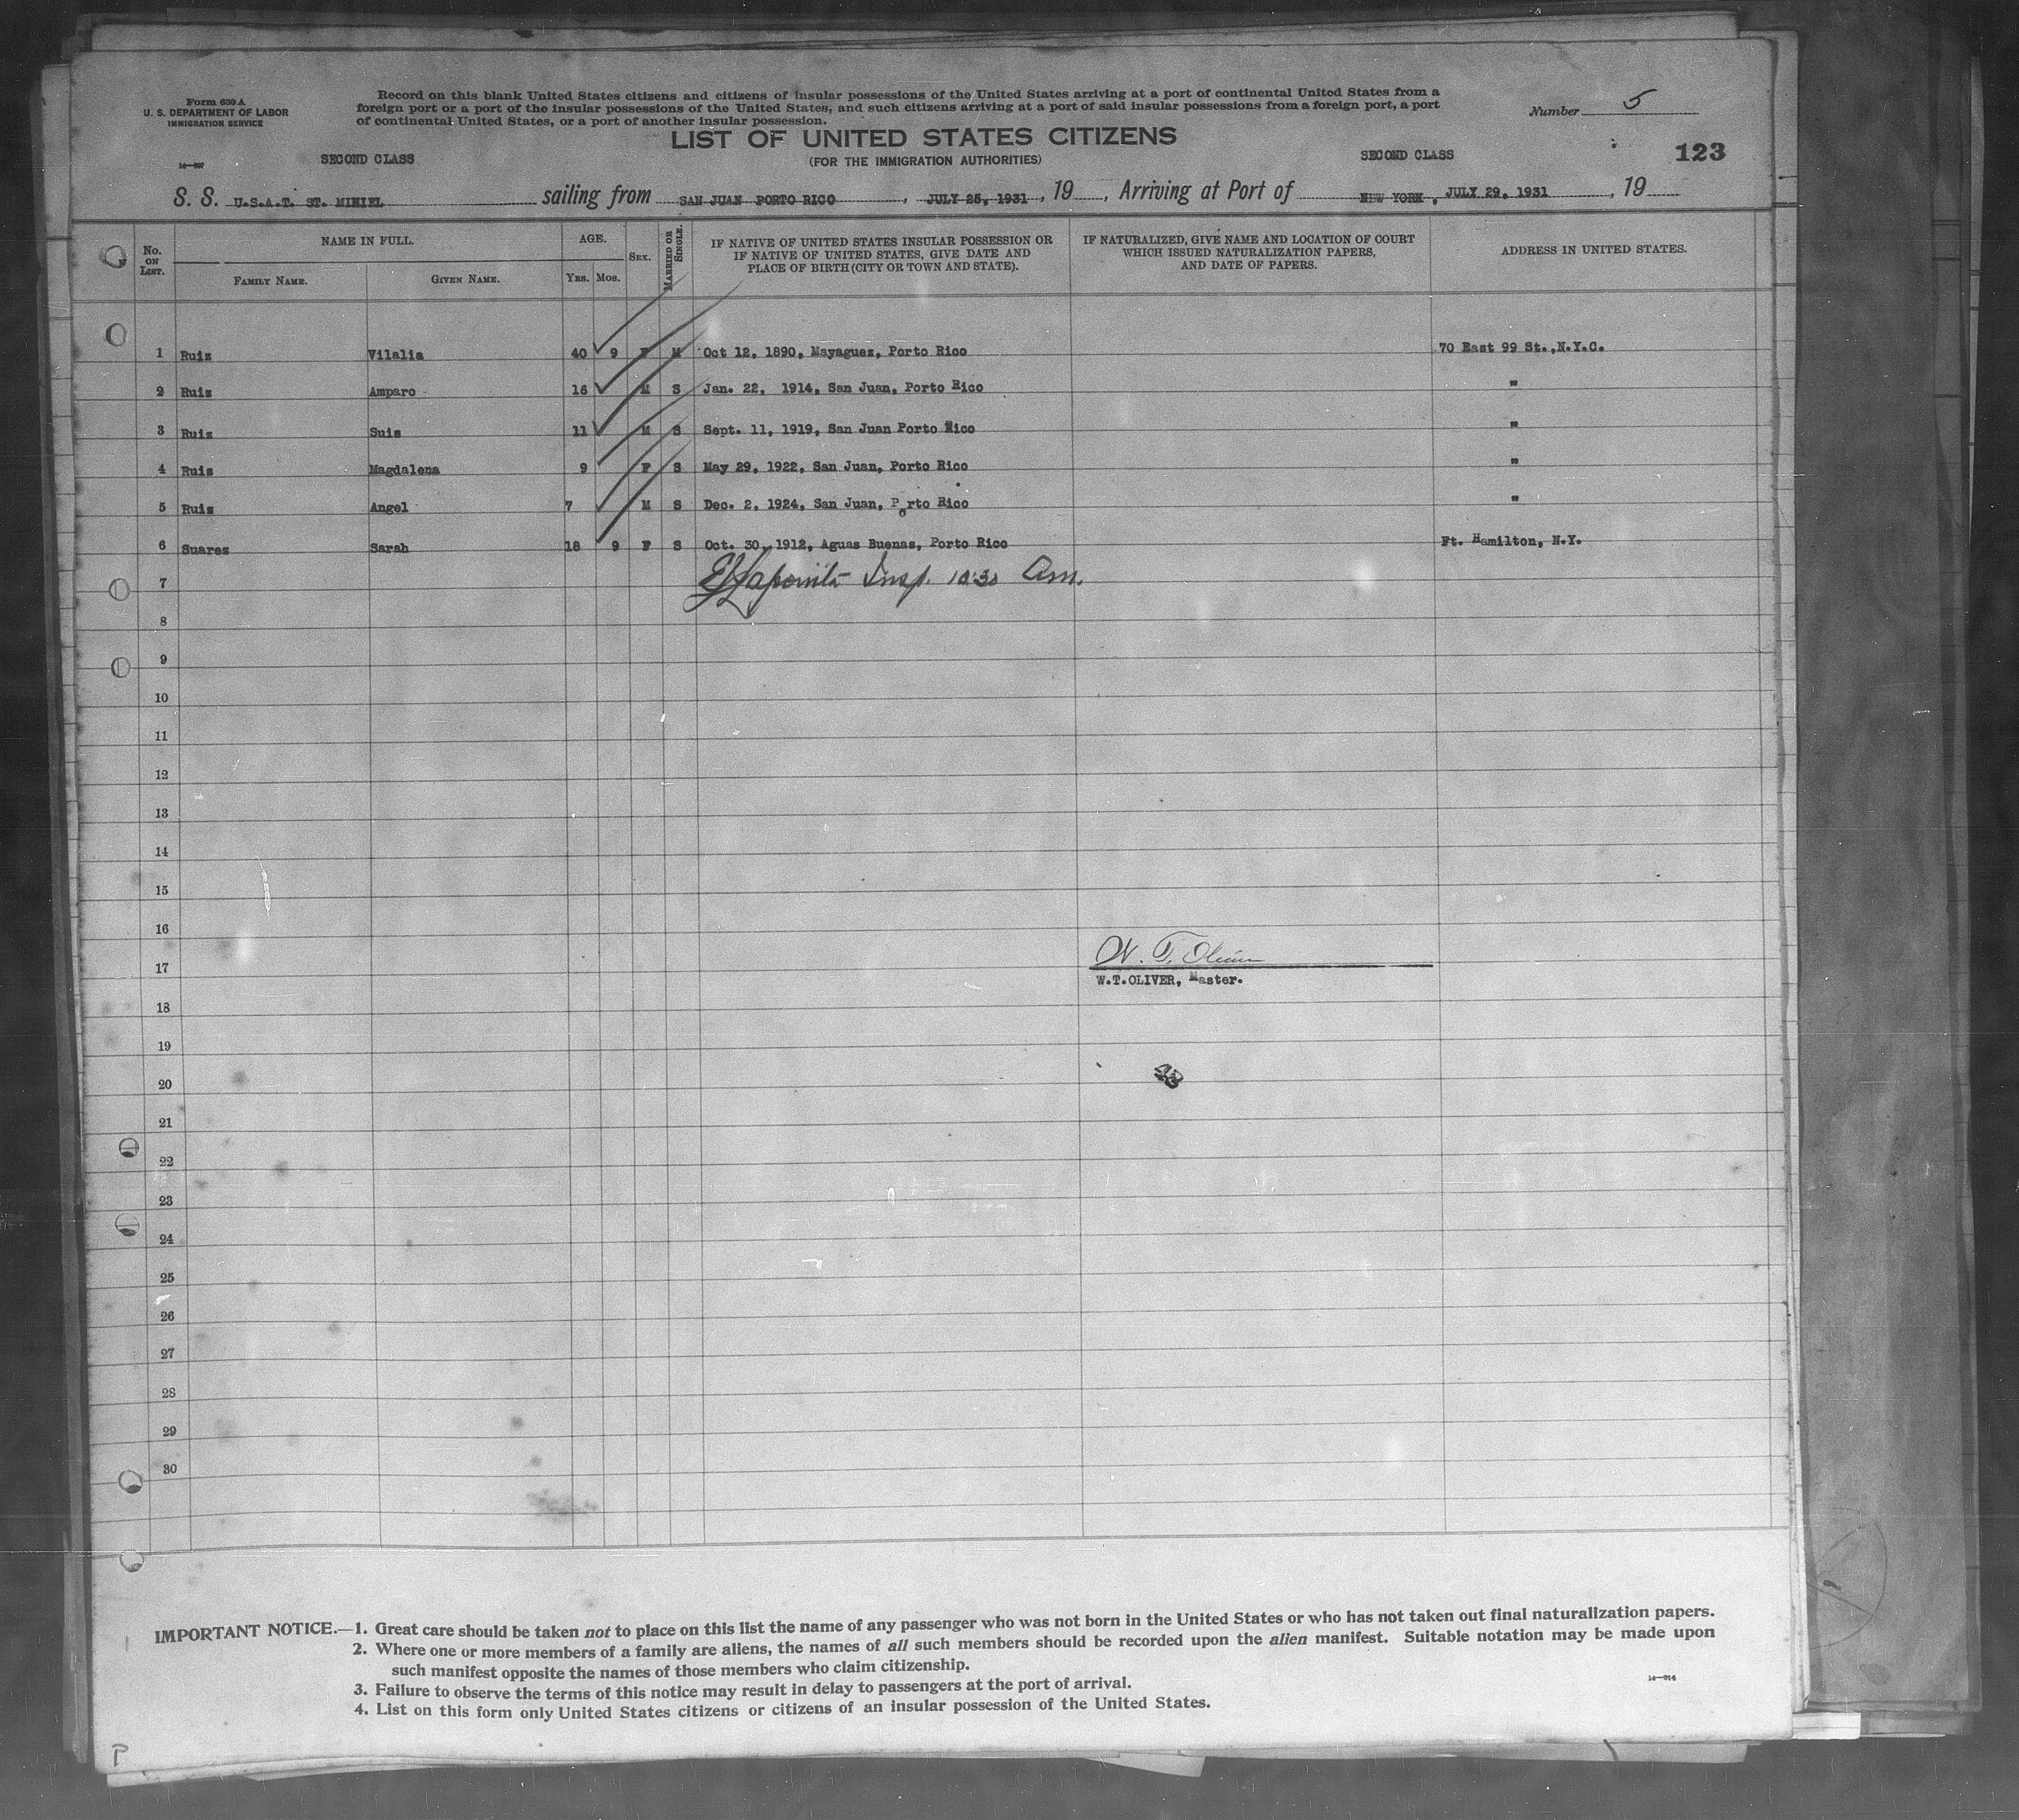 Form 630 A
U. S. DEPARTMENT OF LABOR
IMMIGRATION SERVICE
Record on this blank United States citizens and citizens of insular possessions of the United States arriving at a port of continental United States from a
foreign port or a port of the insular possessions of the United States, and such citizens arriving at a port of said insular possessions from a foreign port, a port
of continental United States, or a port of another insular possession.
Number 5
LIST OF UNITED STATES CITIZENS
(FOR THE IMMIGRATION AUTHORITIES)
123
SECOND CLASS SECOND CLASS
S. S. U.S.A.T. ST. MIHIEL sailing from SAN JUAN PORTO RICO, JULY 25, 1931, 19 , Arriving at Port of NEW YORK, JULY 29, 1931, 19
No. ON LIST. NAME IN FULL. AGE. SEX. MARRIED OR SINGLE. IF NATIVE OF UNITED STATES INSULAR POSSESSION OR IF NATIVE OF UNITED STATES, GIVE DATE AND PLACE OF BIRTH (CITY OR TOWN AND STATE). IF NATURALIZED, GIVE NAME AND LOCATION OF COURT WHICH ISSUED NATURALIZATION PAPERS, AND DATE OF PAPERS. ADDRESS IN UNITED STATES.
FAMILY NAME. GIVEN NAME. YRS. MOS.
1 Ruiz Vilalia 40 9 F M Oct 12, 1890, Mayaguez, Porto Rico 70 East 99 St.,N.Y.C.
2 Ruiz Amparo 16 M S Jan. 22, 1914, San Juan, Porto Rico "
3 Ruiz Suis 11 M S Sept. 11, 1919, San Juan Porto Rico "
4 Ruis Magdalena 9 F S May 29, 1922, San Juan, Porto Rico "
5 Ruiz Angel 7 M S Dec. 2, 1924, San Juan, Porto Rico "
6 Suares Sarah 18 9 F S Oct. 30, 1912, Aguas Buenas, Porto Rico Ft. Hamilton, N.Y.
7 Insp. 10:30 Am.
8
9
10
11
12
13
14
15
16
W. T. Oliver
17
W.T.OLIVER, Master.
18
19
20
21
22
23
24
25
26
27
28
29
30
IMPORTANT NOTICE.—1. Great care should be taken not to place on this list the name of any passenger who was not born in the United States or who has not taken out final naturalization papers.
2. Where one or more members of a family are aliens, the names of all such members should be recorded upon the alien manifest. Suitable notation may be made upon
such manifest opposite the names of those members who claim citizenship.
3. Failure to observe the terms of this notice may result in delay to passengers at the port of arrival.
4. List on this form only United States citizens or citizens of an insular possession of the United States.
P